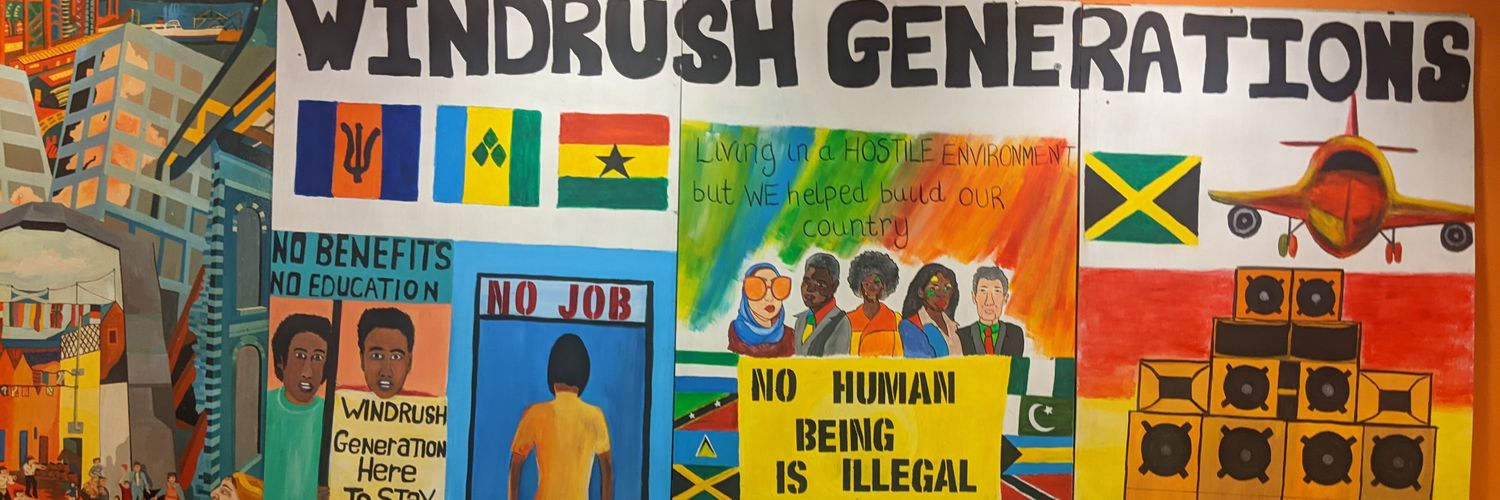 WINDRUSH GENERATIONS
NO BENEFITS
NO EDUCATION
WINDRUSH
Generation
Here
To Stay
NO JOB
Living in a HOSTILE ENVIRONMENT
but WE helped build OUR
country
NO HUMAN
BEING
IS ILLEGAL